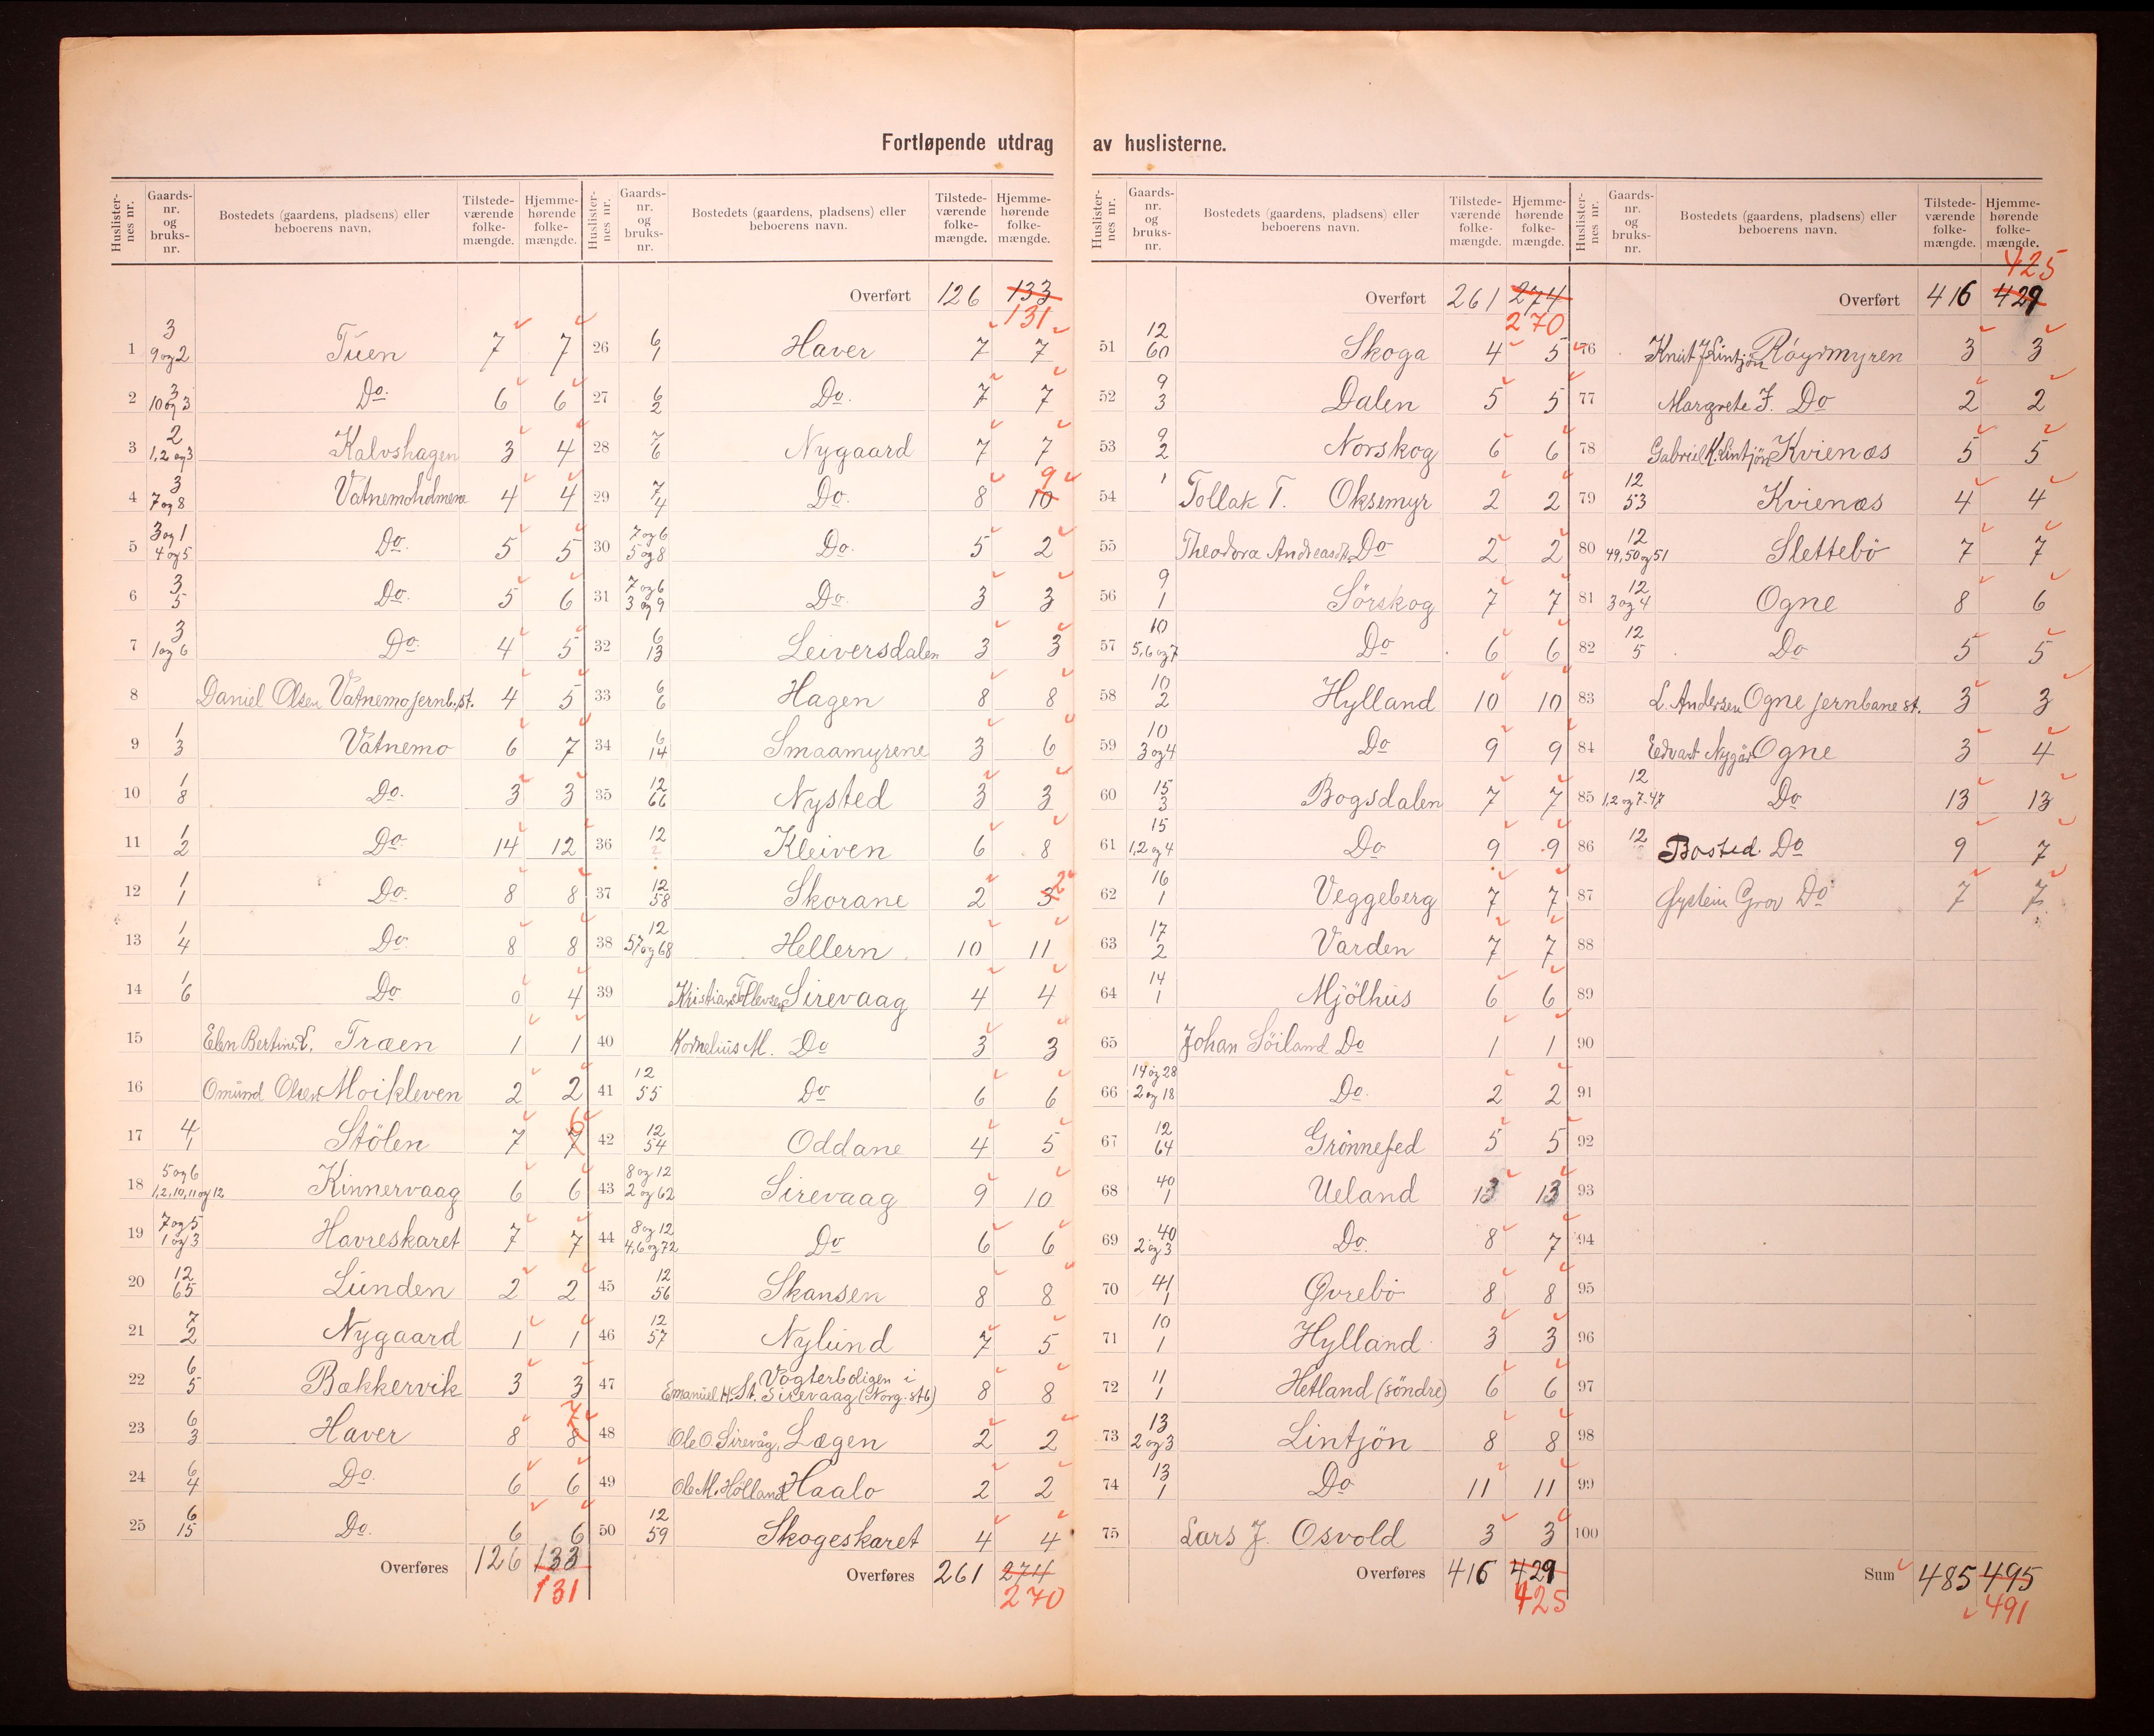 Fortløpende utdrag av huslisterne.
Huslisternes nr. Gaardsnr. og bruksnr. Bostedets (gaardens, pladsens) eller beboerens navn. Tilstedeværende folkemængde. Hjemmehørende folkemængde.
1 3 9 og 2 Tuen 7 7
2 3 10 og 3 Do. 6 6
3 2 1,2 og 3 Kalvshagen 3 4
4 3 7 og 8 Vatnemoholmene 4 4
5 3 og 1 4 og 5 Do. 5 5
6 3 5 Do. 5 6
7 3 1 og 6 Do. 4 5
8 Daniel Olsen Vatnemo jernb.st. 4 5
9 1 3 Vatnemo 6 7
10 1 8 Do. 3 3
11 1 2 Do. 14 12
12 1 1 Do. 8 8
13 1 4 Do. 8 8
14 1 6 Do 0 4
15 Elen Bertine Træen 1 1
16 Omund Olsen Moikleven 2 2
17 4 1 Stölen 7 7 6
18 5 og 6 1,2,10,11 og 12 Kinnervaag 6 6
19 7 og 5 1 og 3 Havreskaret 7 7
20 12 65 Lunden 2 2
21 7 2 Nygaard 1 1
22 6 5 Bakkervik 3 3
23 6 3 Haver 8 8 7
24 6 4 Do. 6 6
25 6 15 Do. 6 6
Overføres 126 133
131
Huslisternes nr. Gaardsnr. og bruksnr. Bostedets (gaardens, pladsens) eller beboerens navn. Tilstedeværende folkemængde. Hjemmehørende folkemængde.
Overført 126 133
131
26 6 1 Haver 7 7
27 6 2 Do. 7 7
28 7 6 Nygaard 7 7
29 7 4 Do. 8 10 9
30 7 og 6 5 og 8 Do. 5 2
31 7 og 6 3 og 9 Do. 3 3
32 6 13 Leiversdalen 3 3
33 6 6 Hagen 8 8
34 6 14 Smaamyrene 3 6
35 12 66 Nysted 3 3
36 12 Kleiven 6 8
37 12 58 Skorane 2 3 2
38 12 57 og 68 Hellern 10 11
39 Kristian Tollevsen Sirevaag 4 4
40 Kornelius M. Do 3 3
41 12 55 Do 6 6
42 12 54 Oddane 4 5
43 8 og 12 2 og 62 Sirevaag 9 10
44 8 og 12 4,6 og 72 Do 6 6
45 12 56 Skansen 8 8
46 12 57 Nylund 7 5
47 Emanuel H. St. Vogterboligen i Sirevaag (Norg. stb) 8 8
48 Ole O. Sirevåg, Lægen 2 2
49 Ole M. Hölland Haalo 2 2
50 12 59 Skogeskaret 4 4
Overføres 261 274
270
Huslisternes nr. Gaardsnr. og bruksnr. Bostedets (gaardens, pladsens) eller beboerens navn. Tilstedeværende folkemængde. Hjemmehørende folkemængde.
Overført 261 274
270
51 12 60 Skoga 4 5
52 9 3 Dalen 5 5
53 9 2 Norskog 6 6
54 1 Tollak T. Oksemyr 2 2
55 Theodora Andreasdt. Do 2 2
56 9 1 Sörskog 7 7
57 10 5,6 og 7 Do 6 6
58 10 2 Hylland 10 10
59 10 3 og 4 Do 9 9
60 15 3 Bogsdalen 7 7
61 15 1,2 og 4 Do 9 9
62 16 1 Veggeberg 7 7
63 17 2 Varden 7 7
64 14 1 Mjölhus 6 6
65 Johan Söiland Do 1 1
66 14 og 28 2 og 18 Do. 2 2
67 12 64 Grönnefed 5 5
68 40 1 Ueland 13 13
69 40 2 og 3 Do. 8 7
70 41 1 Øvrebö 8 8
71 10 1 Hylland 3 3
72 11 1 Hetland (söndre) 6 6
73 13 2 og 3 Lintjön 8 8
74 13 1 Do 11 11
75 Lars J. Osvold 3 3
Overføres 416 429
425
Huslisternes nr. Gaardsnr. og bruksnr. Bostedets (gaardens, pladsens) eller beboerens navn. Tilstedeværende folkemængde. Hjemmehørende folkemængde.
425
Overført 416 429
76 Knut J Lintjön Röysmyren 3 3
77 Margrete J. Do 2 2
78 Gabriel K. Lintjön Kvienæs 5 5
79 12 53 Kvienæs 4 4
80 12 49,50 og 51 Slettebö 7 7
81 12 3 og 4 Ogne 8 6
82 12 5 Do 5 5
83 L. Andersen Ogne jernbane st. 3 3
84 Edvart Nygår Ogne 3 4
85 12 1,2 og 7-47 Do 13 13
86 12 Bosted. Do 9 7
87 Øystein Grov Do 7 7
88
89
90
91
92
93
94
95
96
97
98
99
100
Sum 485 495
491